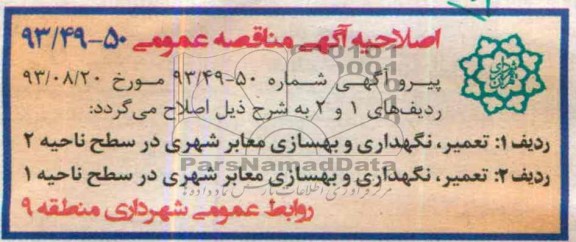 اصلاحیه آگهی مناقصه عمومی ۵۰-۹۳/۴۹
پیرو آگهی شماره ۵۰-۹۳/۴۹ مورخ ۹۳/۰۸/۲۰
ردیف‌های ۱ و ۲ به شرح ذیل اصلاح می‌گردد:
ردیف ۱: تعمیر، نگهداری و بهسازی معابر شهری در سطح ناحیه ۲
ParsNamadData
ردیف ۲: تعمیر، نگهداری و بهسازی معابر شهری در سطح ناحیه ۱
مرکز فرآوری اطلاعات پارس نماد داده‌ها
روابط عمومی شهرداری منطقه ۹